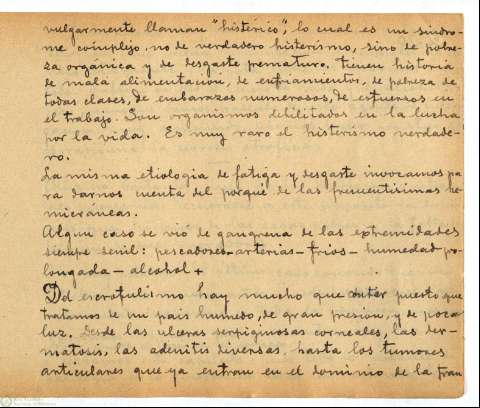 vulgarmente llaman "histérico", lo cual es un sindro-
me complejo, no de verdadero histerismo, sino de pobre-
za orgánica y de desgaste prematuro. tienen historia
de mala alimentación, de enfriamientos, de pobreza de
todas clases, de embarazos numerosos, de esfuerzos en
el trabajo. Son organismos debilitados en la lucha
por la vida. Es muy raro el histerismo verdade-
ro.
La misma etiologia de fatiga y desgaste invocamos pa
ra darnos cuenta del porqué de las frecuentisimas he
micráneas.
Algun caso se vió de gangrena de las extremidades
siempre senil: pescadores - arterias - frios - humedad pro
longada - alcohol +
Del escrofulismo hay mucho que puesto que
tratamos de un pais humedo, de gran presion, y de poca
luz. Desde las ulceras serpiginosas corneales, las der-
matosis, las adenitis diversas, hasta los tumores
articulares que ya entran en el dominio de la fran